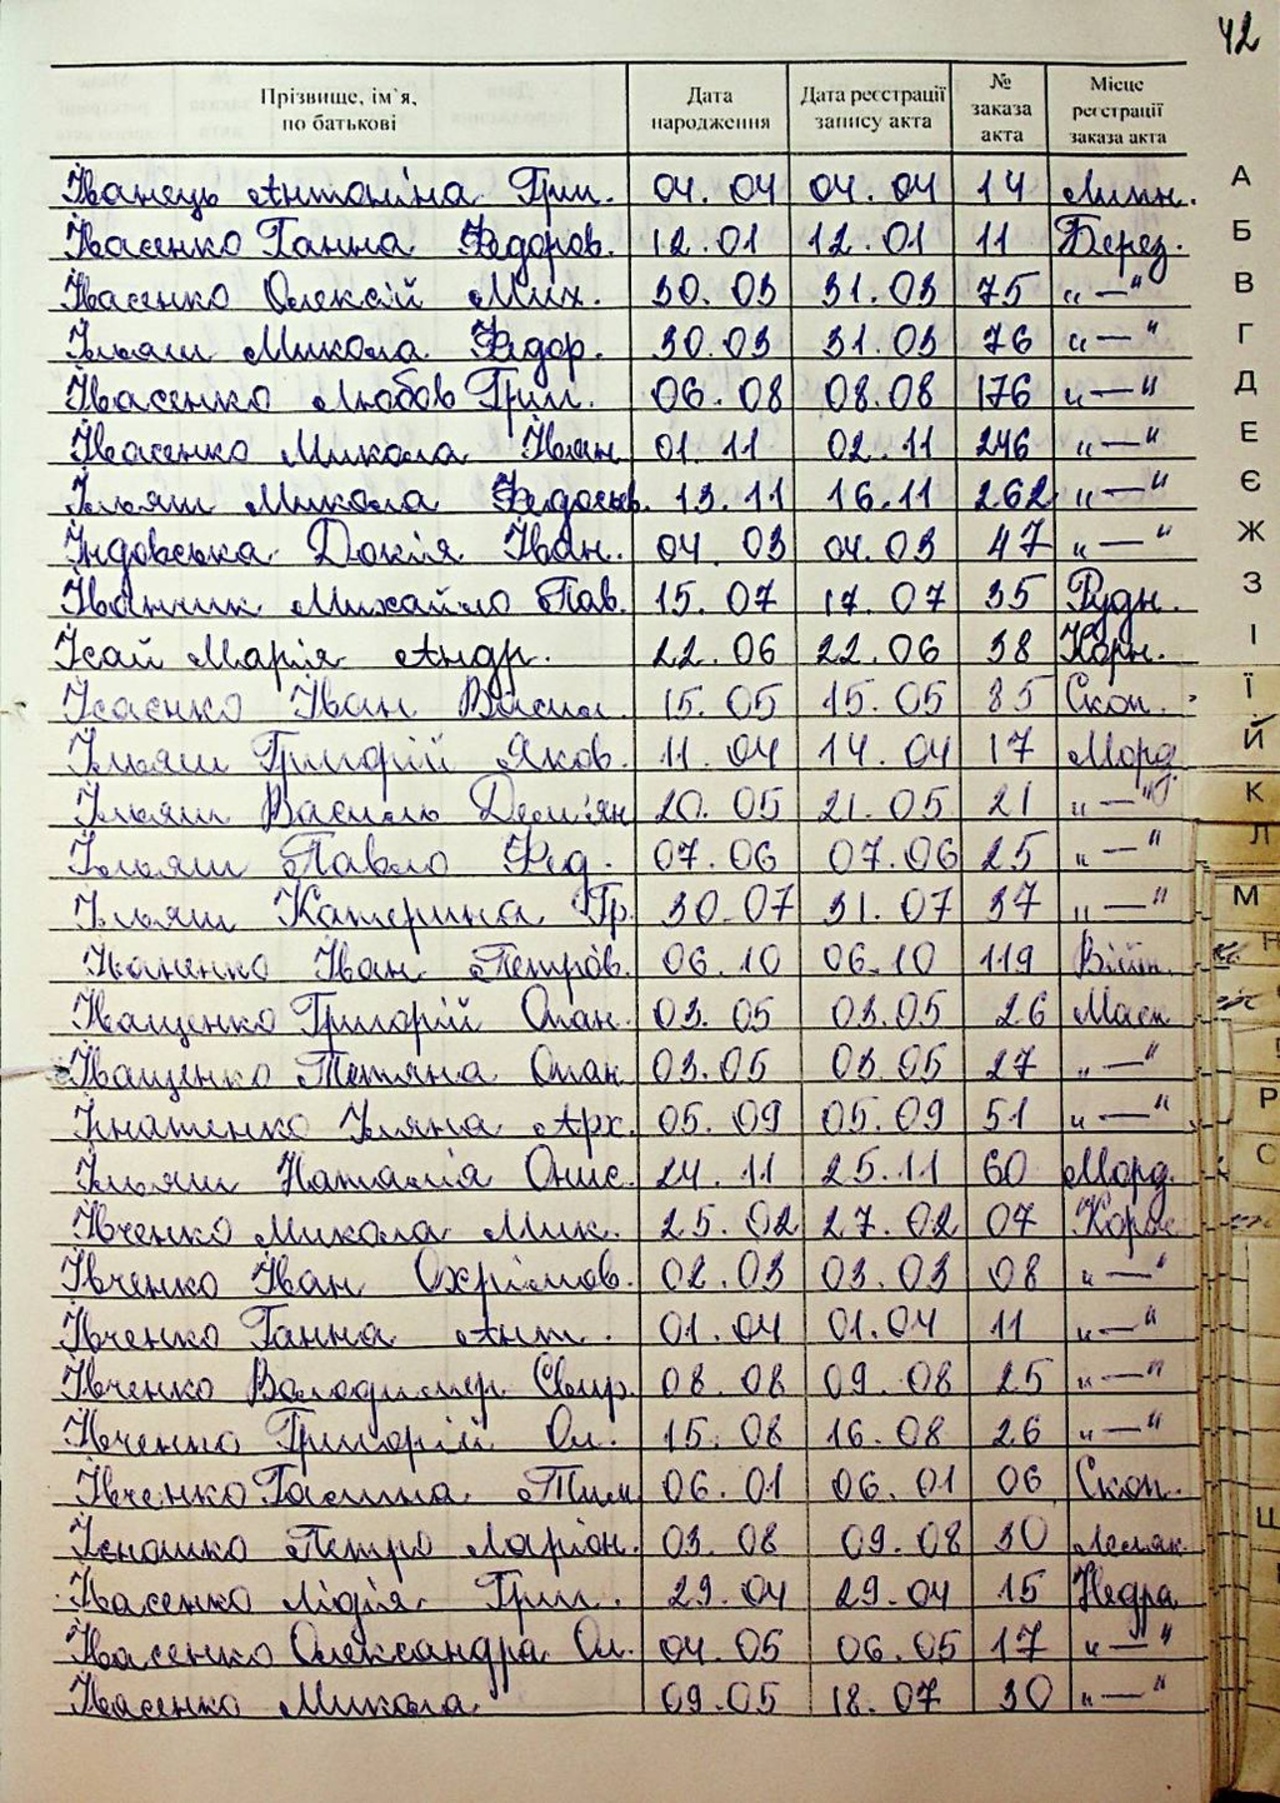 42
Прізвище, ім`я, по батькові Дата народження Дата реєстрації запису акта № заказа акта Місце реєстрації заказа акта
Іванець Антоніна Григ. 04.04 04.04 14 Липн.
Івасенко Ганна Федоров. 12.01 12.01 11 Берез.
Івасенко Олексій Мих. 30.03 31.03 75 „—“
Ільяш Микола Федор. 30.03 31.03 76 „—“
Івасенко Любов Григ. 06.08 08.08 176 „—“
Івасенко Микола Іван 01.11 02.11 246 „—“
Ільяш Микола Федосієв. 13.11 16.11 262 „—“
Індовська Докія Іван. 04 03 04.03 47 „—“
Іванчик Михайло Пав. 15.07 17.07 35 Рудн.
Ісай Марія Андр. 22.06 22.06 38 Корн.
Ісаєнко Іван Васил. 15.05 15.05 85 Скоп.
Ільяш Григорій Яков. 11.04 14.04 17 Морд
Ільяш Василь Дем'ян 20.05 21.05 21 „—“
Ільяш Павло Фед. 07.06 07.06 25 „—“
Ільяш Катерина Гр. 30.07 31.07 37 „—“
Іваненко Іван Петров. 06.10 06.10 119 Війт.
Іващенко Григорій Опан. 03.05 03.05 26 Маск
Іващенко Тетяна Опан. 03.05 03.05 27 „—“
Ігнатенко Уляна Арх. 05.09 05.09 51 „—“
Ільяш Наталія Онис. 24.11 25.11 60 Морд.
Івченко Микола Мик. 25.02 27.02 07
Івченко Іван Охрімов. 02.03 03.03 08 „—“
Івченко Ганна Ант. 01.04 01.04 11 „—“
Івченко Володимир Свир. 08.08 09.08 25 „—“
Івченко Григорій Ол. 15.08 16.08 26 „—“
Івченко Галина Тим 06.01 06.01 06 Скоп.
Петро Ларіон. 03.08 09.08 30
Івасенко Лідія Григ. 29.04 29.04 15 Недра
Івасенко Олександра Ол. 04.05 06.05 17 „—“
Івасенко Микола 09.05 18.07 30 „—“
А
Б
В
Г
Д
Е
Є
Ж
З
І
Ї
Й
К
Л
М
Н
Р
С